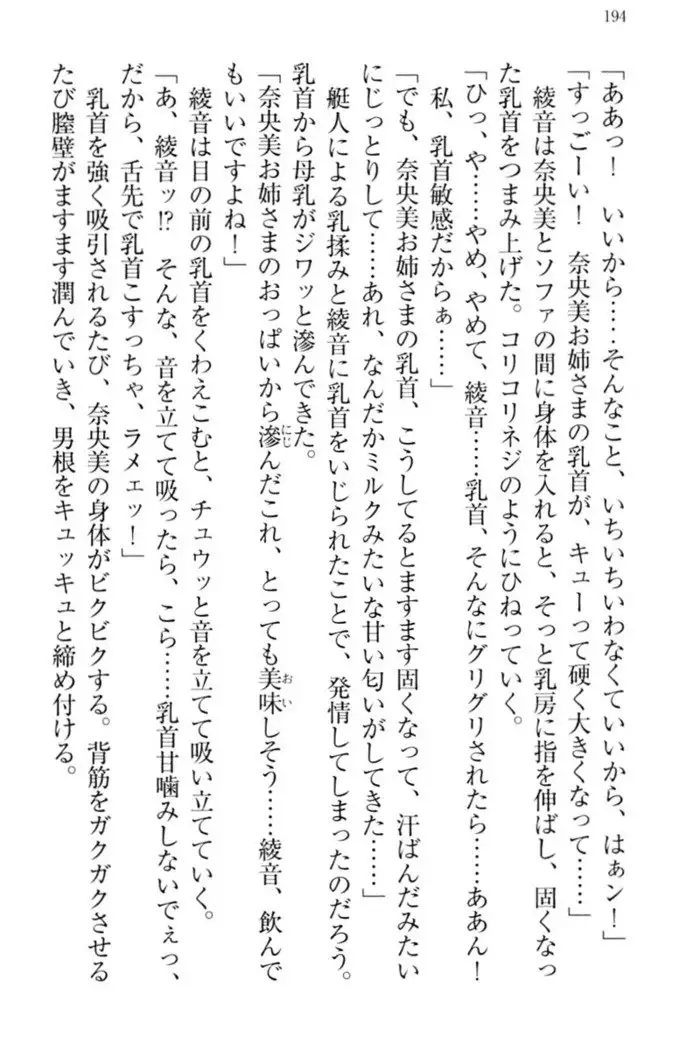 194
「ああっ！　いいから……そんなこと、いちいちいわなくていいから、はぁン！」
「すっごーい！　奈央美お姉さまの乳首が、キューって硬く大きくなって……」
　綾音は奈央美とソファの間に身体を入れると、そっと乳房に指を伸ばし、固くなっ
た乳首をつまみ上げた。コリコリネジのようにひねっていく。
「ひっ、や……やめ、やめて、綾音……乳首、そんなにグリグリされたら……ああん！
　私、乳首敏感だからぁ……」
「でも、奈央美お姉さまの乳首、こうしてるとますます固くなって、汗ばんだみたい
にじっとりして……あれ、なんだかミルクみたいな甘い匂いがしてきた……」
　艇人による乳揉みと綾音に乳首をいじられたことで、発情してしまったのだろう。
乳首から母乳がジワッと滲んできた。
「奈央美お姉さまのおっぱいから滲（にじ）んだこれ、とっても美味（おい）しそう……綾音、飲んで
もいいですよね！」
　綾音は目の前の乳首をくわえこむと、チュウッと音を立てて吸い立てていく。
「あ、綾音ッ!?　そんな、音を立てて吸ったら、こら……乳首甘噛みしないでぇっ、
だから、舌先で乳首こすっちゃ、ラメェッ！」
　乳首を強く吸引されるたび、奈央美の身体がビクビクする。背筋をガクガクさせる
たび膣壁がますます潤んでいき、男根をキュッキュと締め付ける。